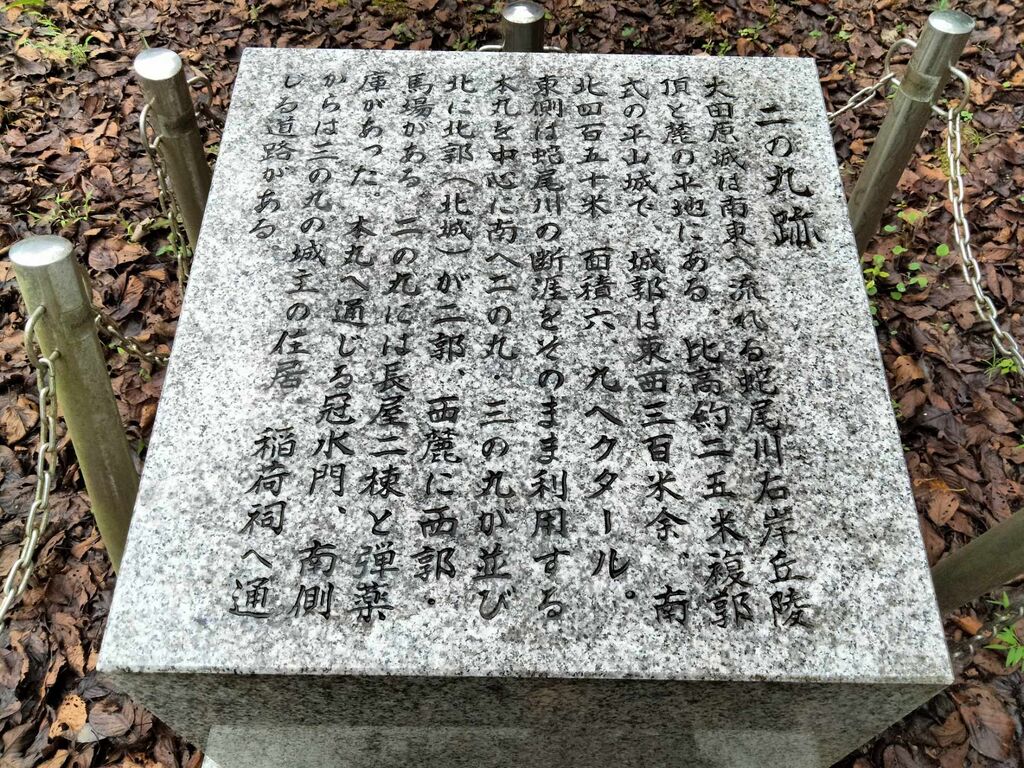 二の丸跡
大田原城は南東へ流れる蛇尾川右岸丘陵
頂と麓の平地にある。比高約二五米複郭
式の平山城で、城郭は東西三百米余。南
北四百五十米 面積六、九ヘクタール。
東側は蛇尾川の断涯をそのまま利用する
本丸を中心に南へ二の丸・三の丸が並び
北に北郭(北城)が二郭、西麓に西郭・
馬場がある。二の丸には長屋二棟と弾薬
庫があった。本丸へ通じる冠水門、南側
からは三の丸の城主の住居 稲荷祠へ通
じる道路がある。